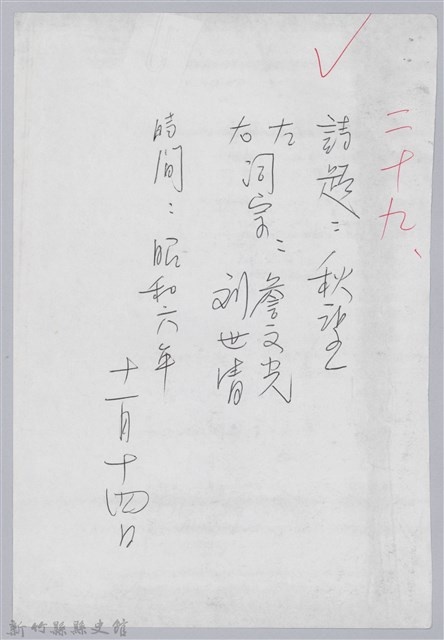 二十九、
詩題：秋望
左
右 詞宗：詹文光
劉世清
時間：昭和六年
十一月十四日
新竹縣縣史館